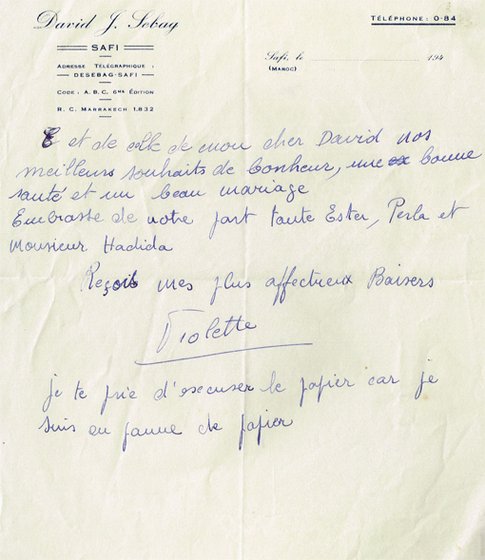 David J. Sebag
SAFI
ADRESSE TÉLÉGRAPHIQUE :
DESEBAG-SAFI
CODE : A. B. C. 6ME ÉDITION
R. C. MARRAKECH 1.832
TÉLÉPHONE : 0-84
Safi, le 194
(MAROC)
et de celle de mon cher David nos
meilleurs souhaits de bonheur, une bonne
santé et un beau mariage
Embrasse de notre part tante Ester, Perla et
Monsieur Hadida
Reçois mes plus affectueux Baisers
Violette
je te prie d'excuser le papier car je
suis en panne de papier